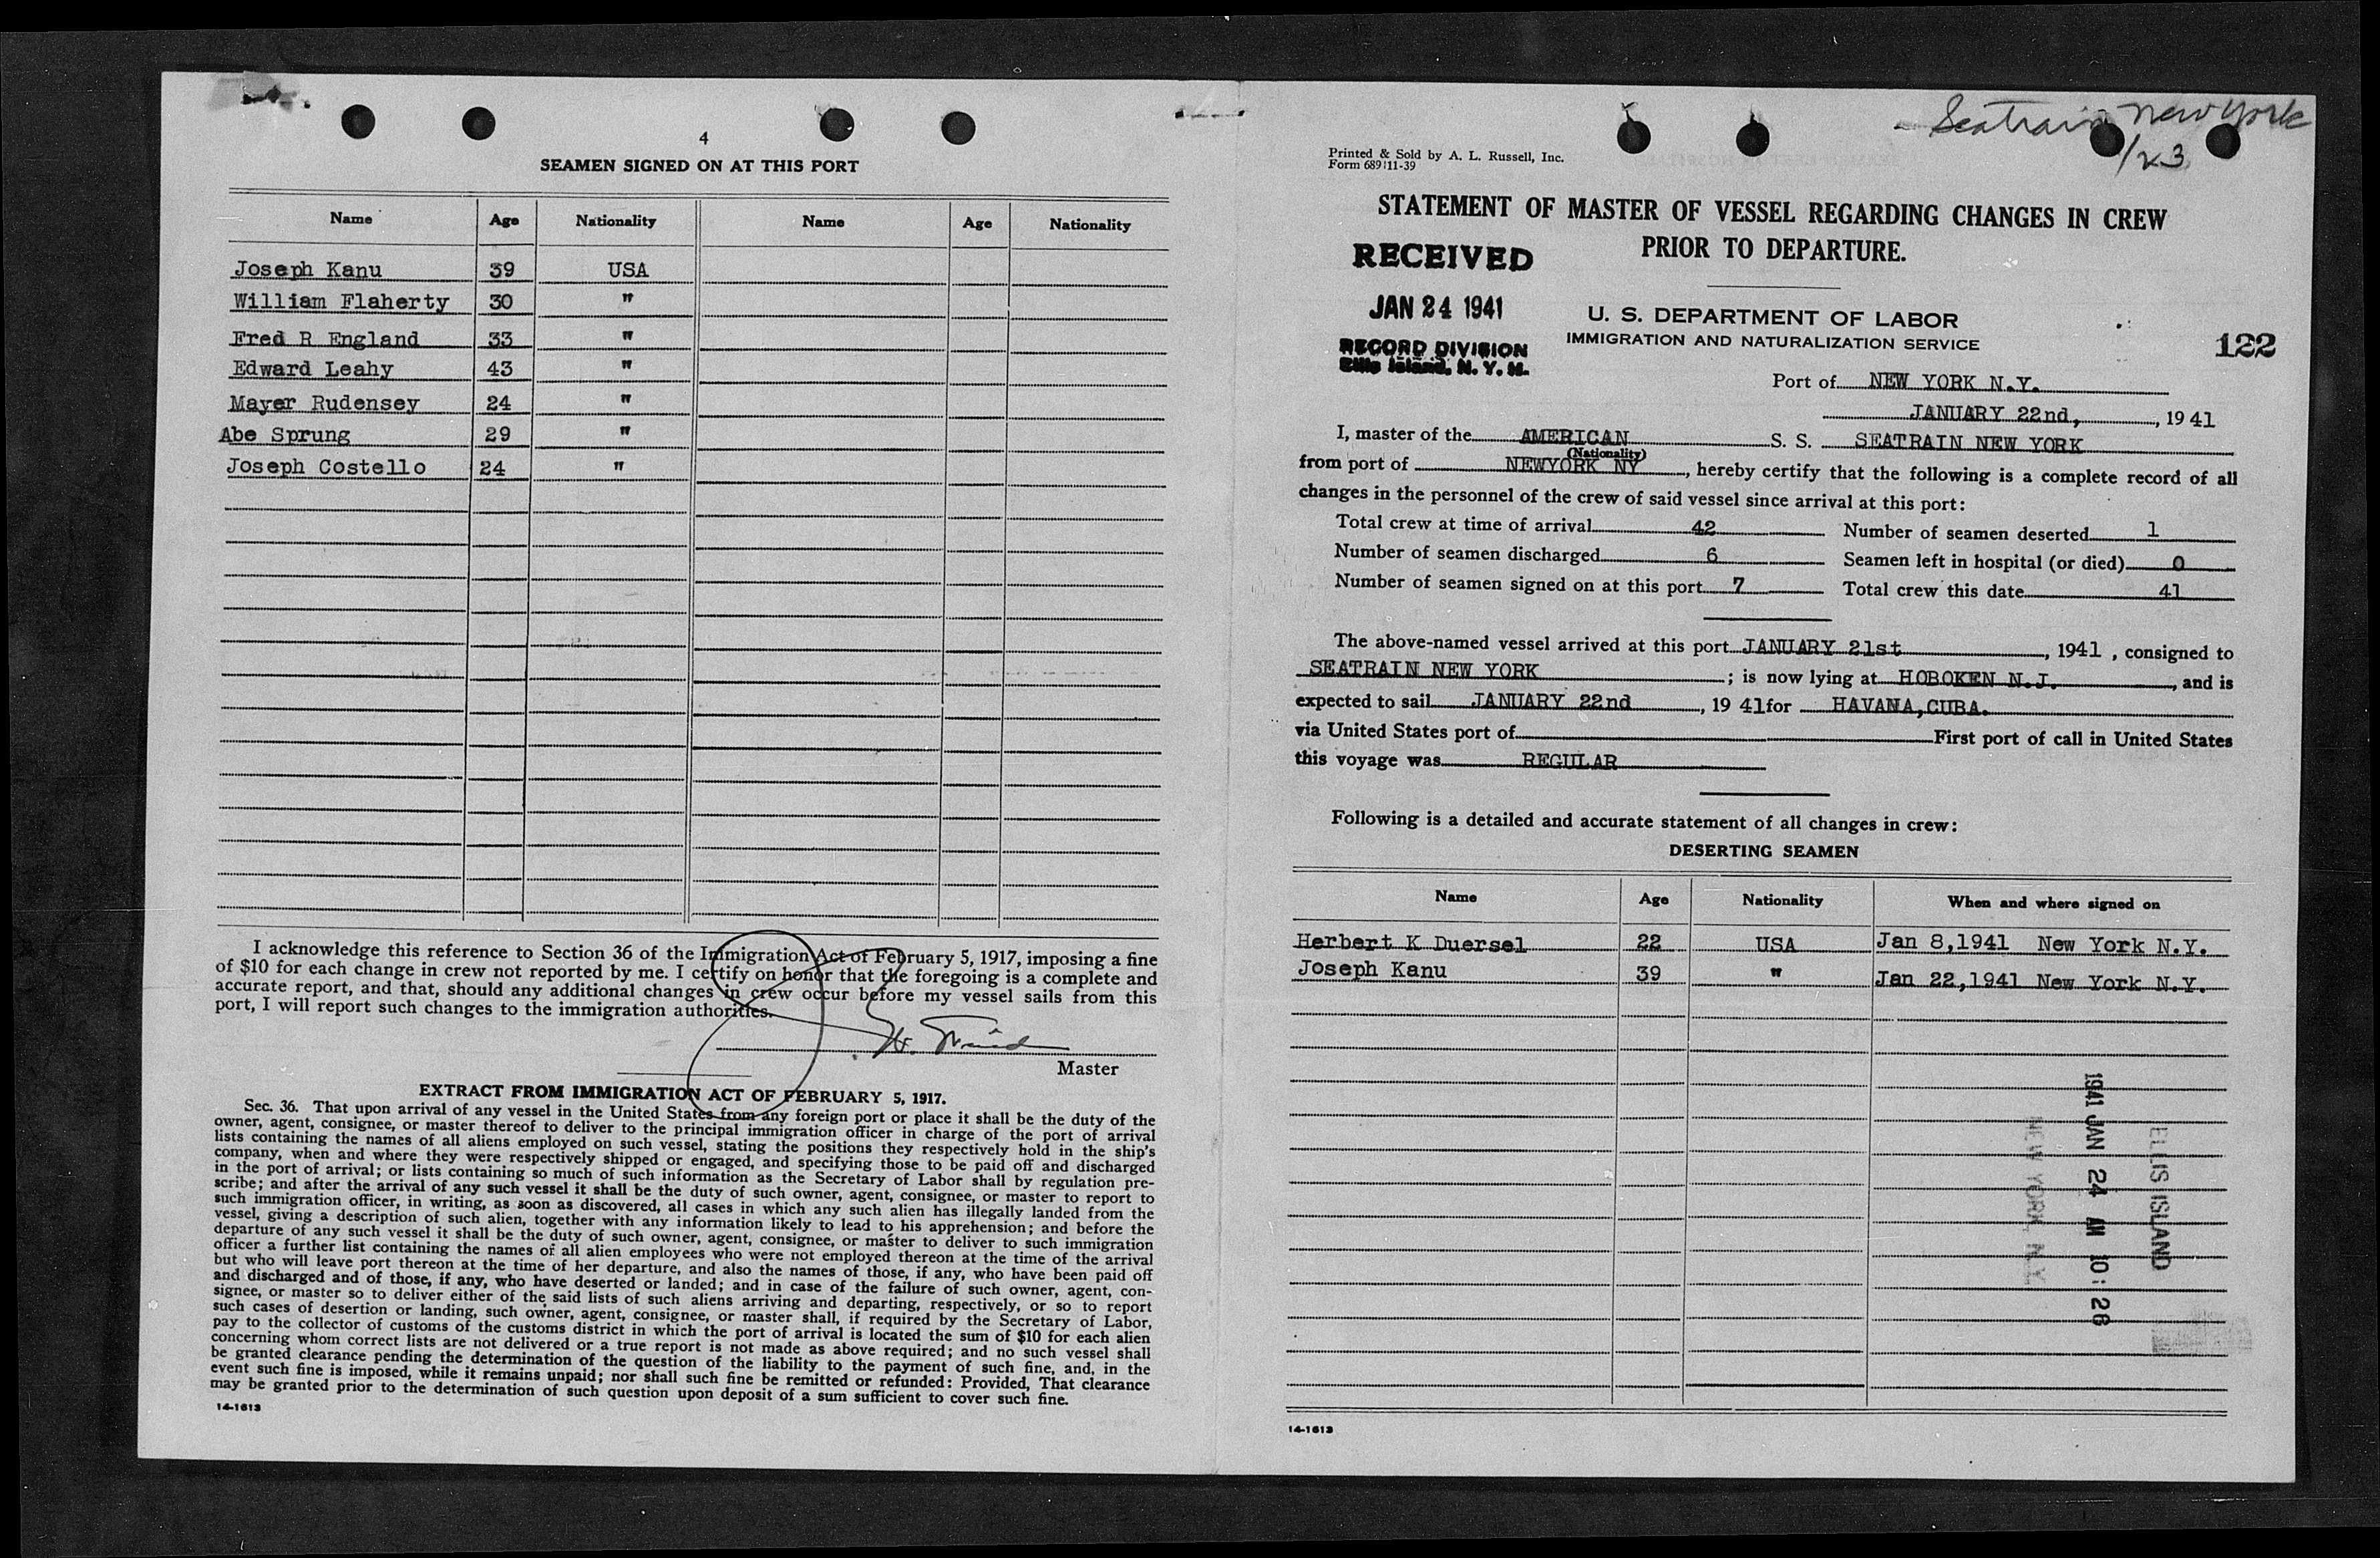 4
SEAMEN SIGNED ON AT THIS PORT
Name Age Nationality Name Age Nationality
Joseph Kanu 39 USA
William Flaherty 30 "
Fred R England 33 "
Edward Leahy 43 "
Mayer Rudensey 24 "
Abe Sprung 29 "
Joseph Costello 24 "
I acknowledge this reference to Section 36 of the Immigration Act of February 5, 1917, imposing a fine
of $10 for each change in crew not reported by me. I certify on honor that the foregoing is a complete and
accurate report, and that, should any additional changes in crew occur before my vessel sails from this
port, I will report such changes to the immigration authorities.
Master
EXTRACT FROM IMMIGRATION ACT OF FEBRUARY 5, 1917.
Sec. 36. That upon arrival of any vessel in the United States from any foreign port or place it shall be the duty of the
owner, agent, consignee, or master thereof to deliver to the principal immigration officer in charge of the port of arrival
lists containing the names of all aliens employed on such vessel, stating the positions they respectively hold in the ship's
company, when and where they were respectively shipped or engaged, and specifying those to be paid off and discharged
in the port of arrival; or lists containing so much of such information as the Secretary of Labor shall by regulation pre-
scribe; and after the arrival of any such vessel it shall be the duty of such owner, agent, consignee, or master to report to
such immigration officer, in writing, as soon as discovered, all cases in which any such alien has illegally landed from the
vessel, giving a description of such alien, together with any information likely to lead to his apprehension; and before the
departure of any such vessel it shall be the duty of such owner, agent, consignee, or master to deliver to such immigration
officer a further list containing the names of all alien employees who were not employed thereon at the time of the arrival
but who will leave port thereon at the time of her departure, and also the names of those, if any, who have been paid off
and discharged and of those, if any, who have deserted or landed; and in case of the failure of such owner, agent, con-
signee, or master so to deliver either of the said lists of such aliens arriving and departing, respectively, or so to report
such cases of desertion or landing, such owner, agent, consignee, or master shall, if required by the Secretary of Labor,
pay to the collector of customs of the customs district in which the port of arrival is located the sum of $10 for each alien
concerning whom correct lists are not delivered or a true report is not made as above required; and no such vessel shall
be granted clearance pending the determination of the question of the liability to the payment of such fine, and, in the
event such fine is imposed, while it remains unpaid; nor shall such fine be remitted or refunded: Provided, That clearance
may be granted prior to the determination of such question upon deposit of a sum sufficient to cover such fine.
14-1613
Seatrain New York
1/23
Printed & Sold by A. L. Russell, Inc.
Form 689 11-39
STATEMENT OF MASTER OF VESSEL REGARDING CHANGES IN CREW
PRIOR TO DEPARTURE.
RECEIVED
JAN 24 1941
RECORD DIVISION
Ellis Island, N. Y. H.
U. S. DEPARTMENT OF LABOR
IMMIGRATION AND NATURALIZATION SERVICE
122
Port of NEW YORK N.Y.
JANUARY 22nd, , 1941
I, master of the AMERICAN S. S. SEATRAIN NEW YORK
(Nationality)
from port of NEWYORK NY , hereby certify that the following is a complete record of all
changes in the personnel of the crew of said vessel since arrival at this port:
Total crew at time of arrival 42 Number of seamen deserted 1
Number of seamen discharged 6 Seamen left in hospital (or died) 0
Number of seamen signed on at this port 7 Total crew this date 41
The above-named vessel arrived at this port JANUARY 21st , 1941 , consigned to
SEATRAIN NEW YORK ; is now lying at HOBOKEN N.J. , and is
expected to sail JANUARY 22nd , 19 41for HAVANA,CUBA.
via United States port of First port of call in United States
this voyage was REGULAR
Following is a detailed and accurate statement of all changes in crew:
DESERTING SEAMEN
Name Age Nationality When and where signed on
Herbert K Duersel 22 USA Jan 8,1941 New York N.Y.
Joseph Kanu 39 " Jan 22,1941 New York N.Y.
ELLIS ISLAND
1941 JAN 24 AM 10:26
NEW YORK, N.Y.
14-1613